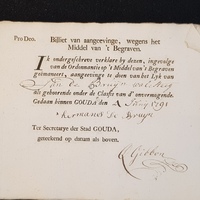 Pro Deo. Billiet van aangeevinge, wegens het
Middel van 't Begraven.
IK ondergeschreve verklare by dezen, ingevolge
van de Ordonnantie op 't Middel van 't Begraven
geëmaneert, aangeevinge te doen van het Lyk van
de Bruyn
als gehoorende onder de Classis van d' onvermogende.
Gedaan binnen GOUDA den 4 1791
Hermanus de Bruyn
Ter Secretarye der Stad GOUDA,
geteekend op datum als boven.